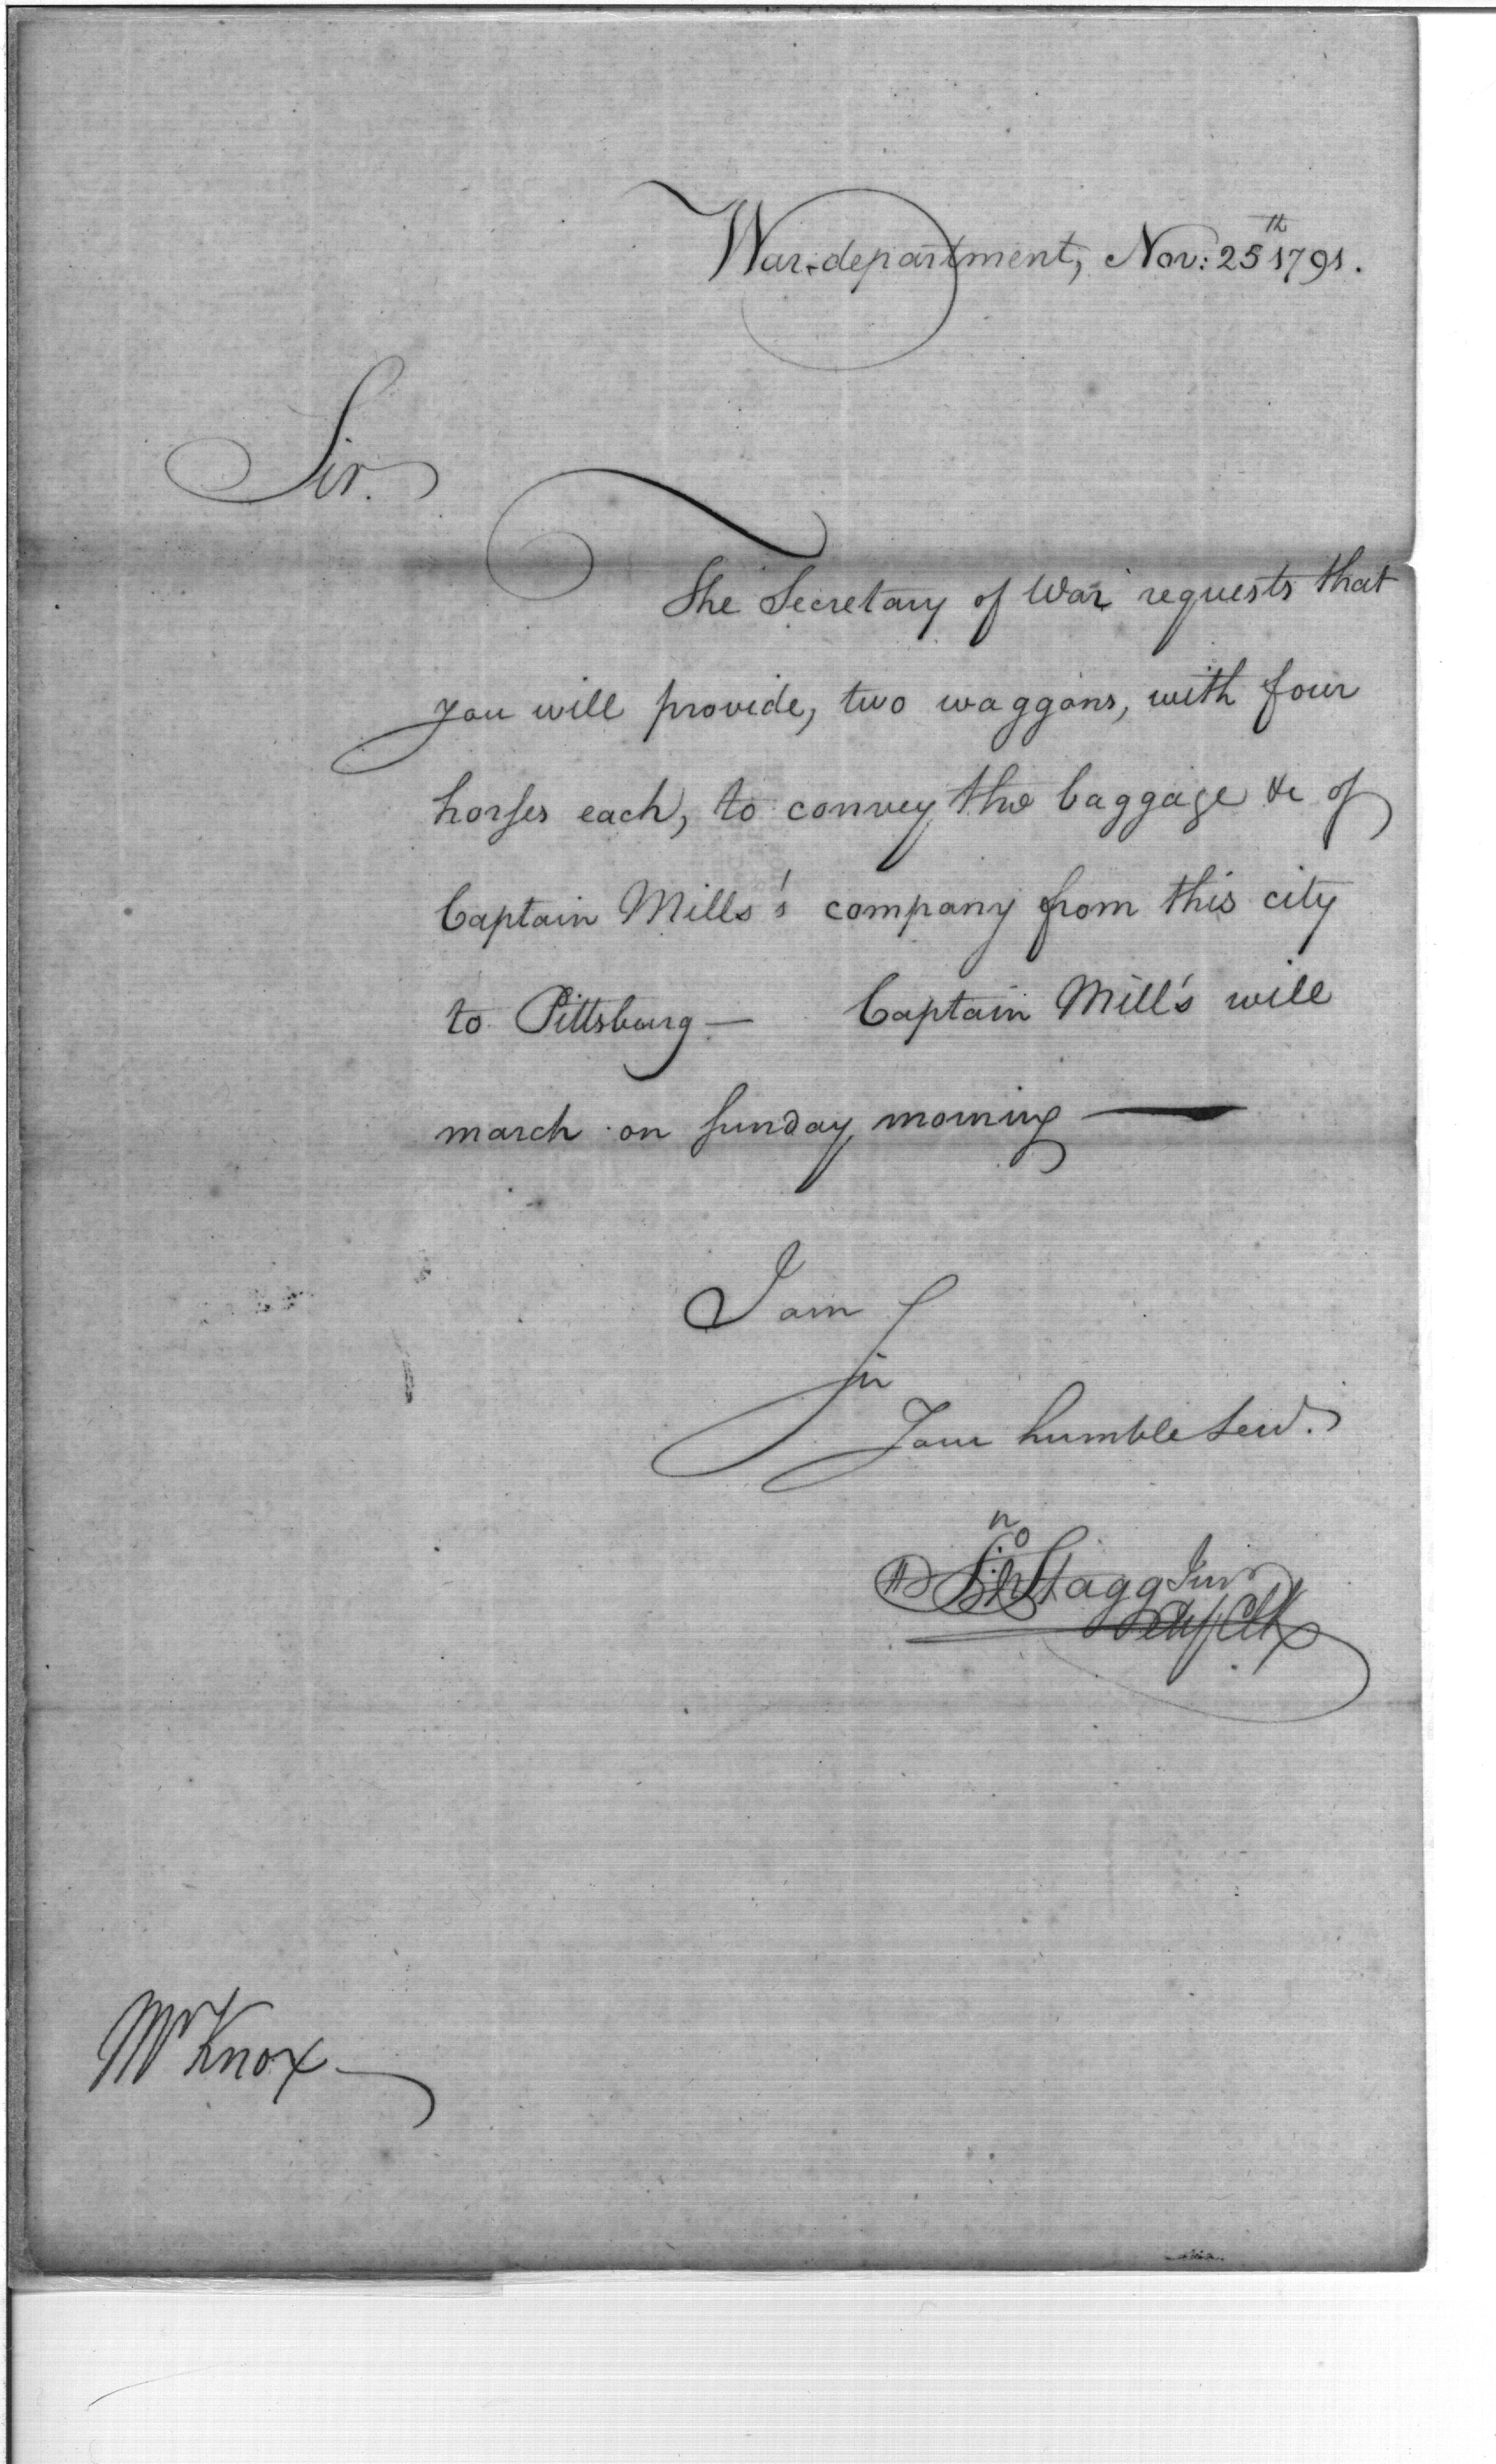 War-department, Nov: 25th 1791.
Sir.
The Secretary of War requests that
you will provide, two waggons, with four
horses each, to convey the baggage &c of
Captain Mills's company from this city
to Pittsburg —    Captain Mill's will
march on Sunday morning —
I am
Sir
Your humble Servt.
Jno Stagg Junr
Chf Clk
Mr Knox